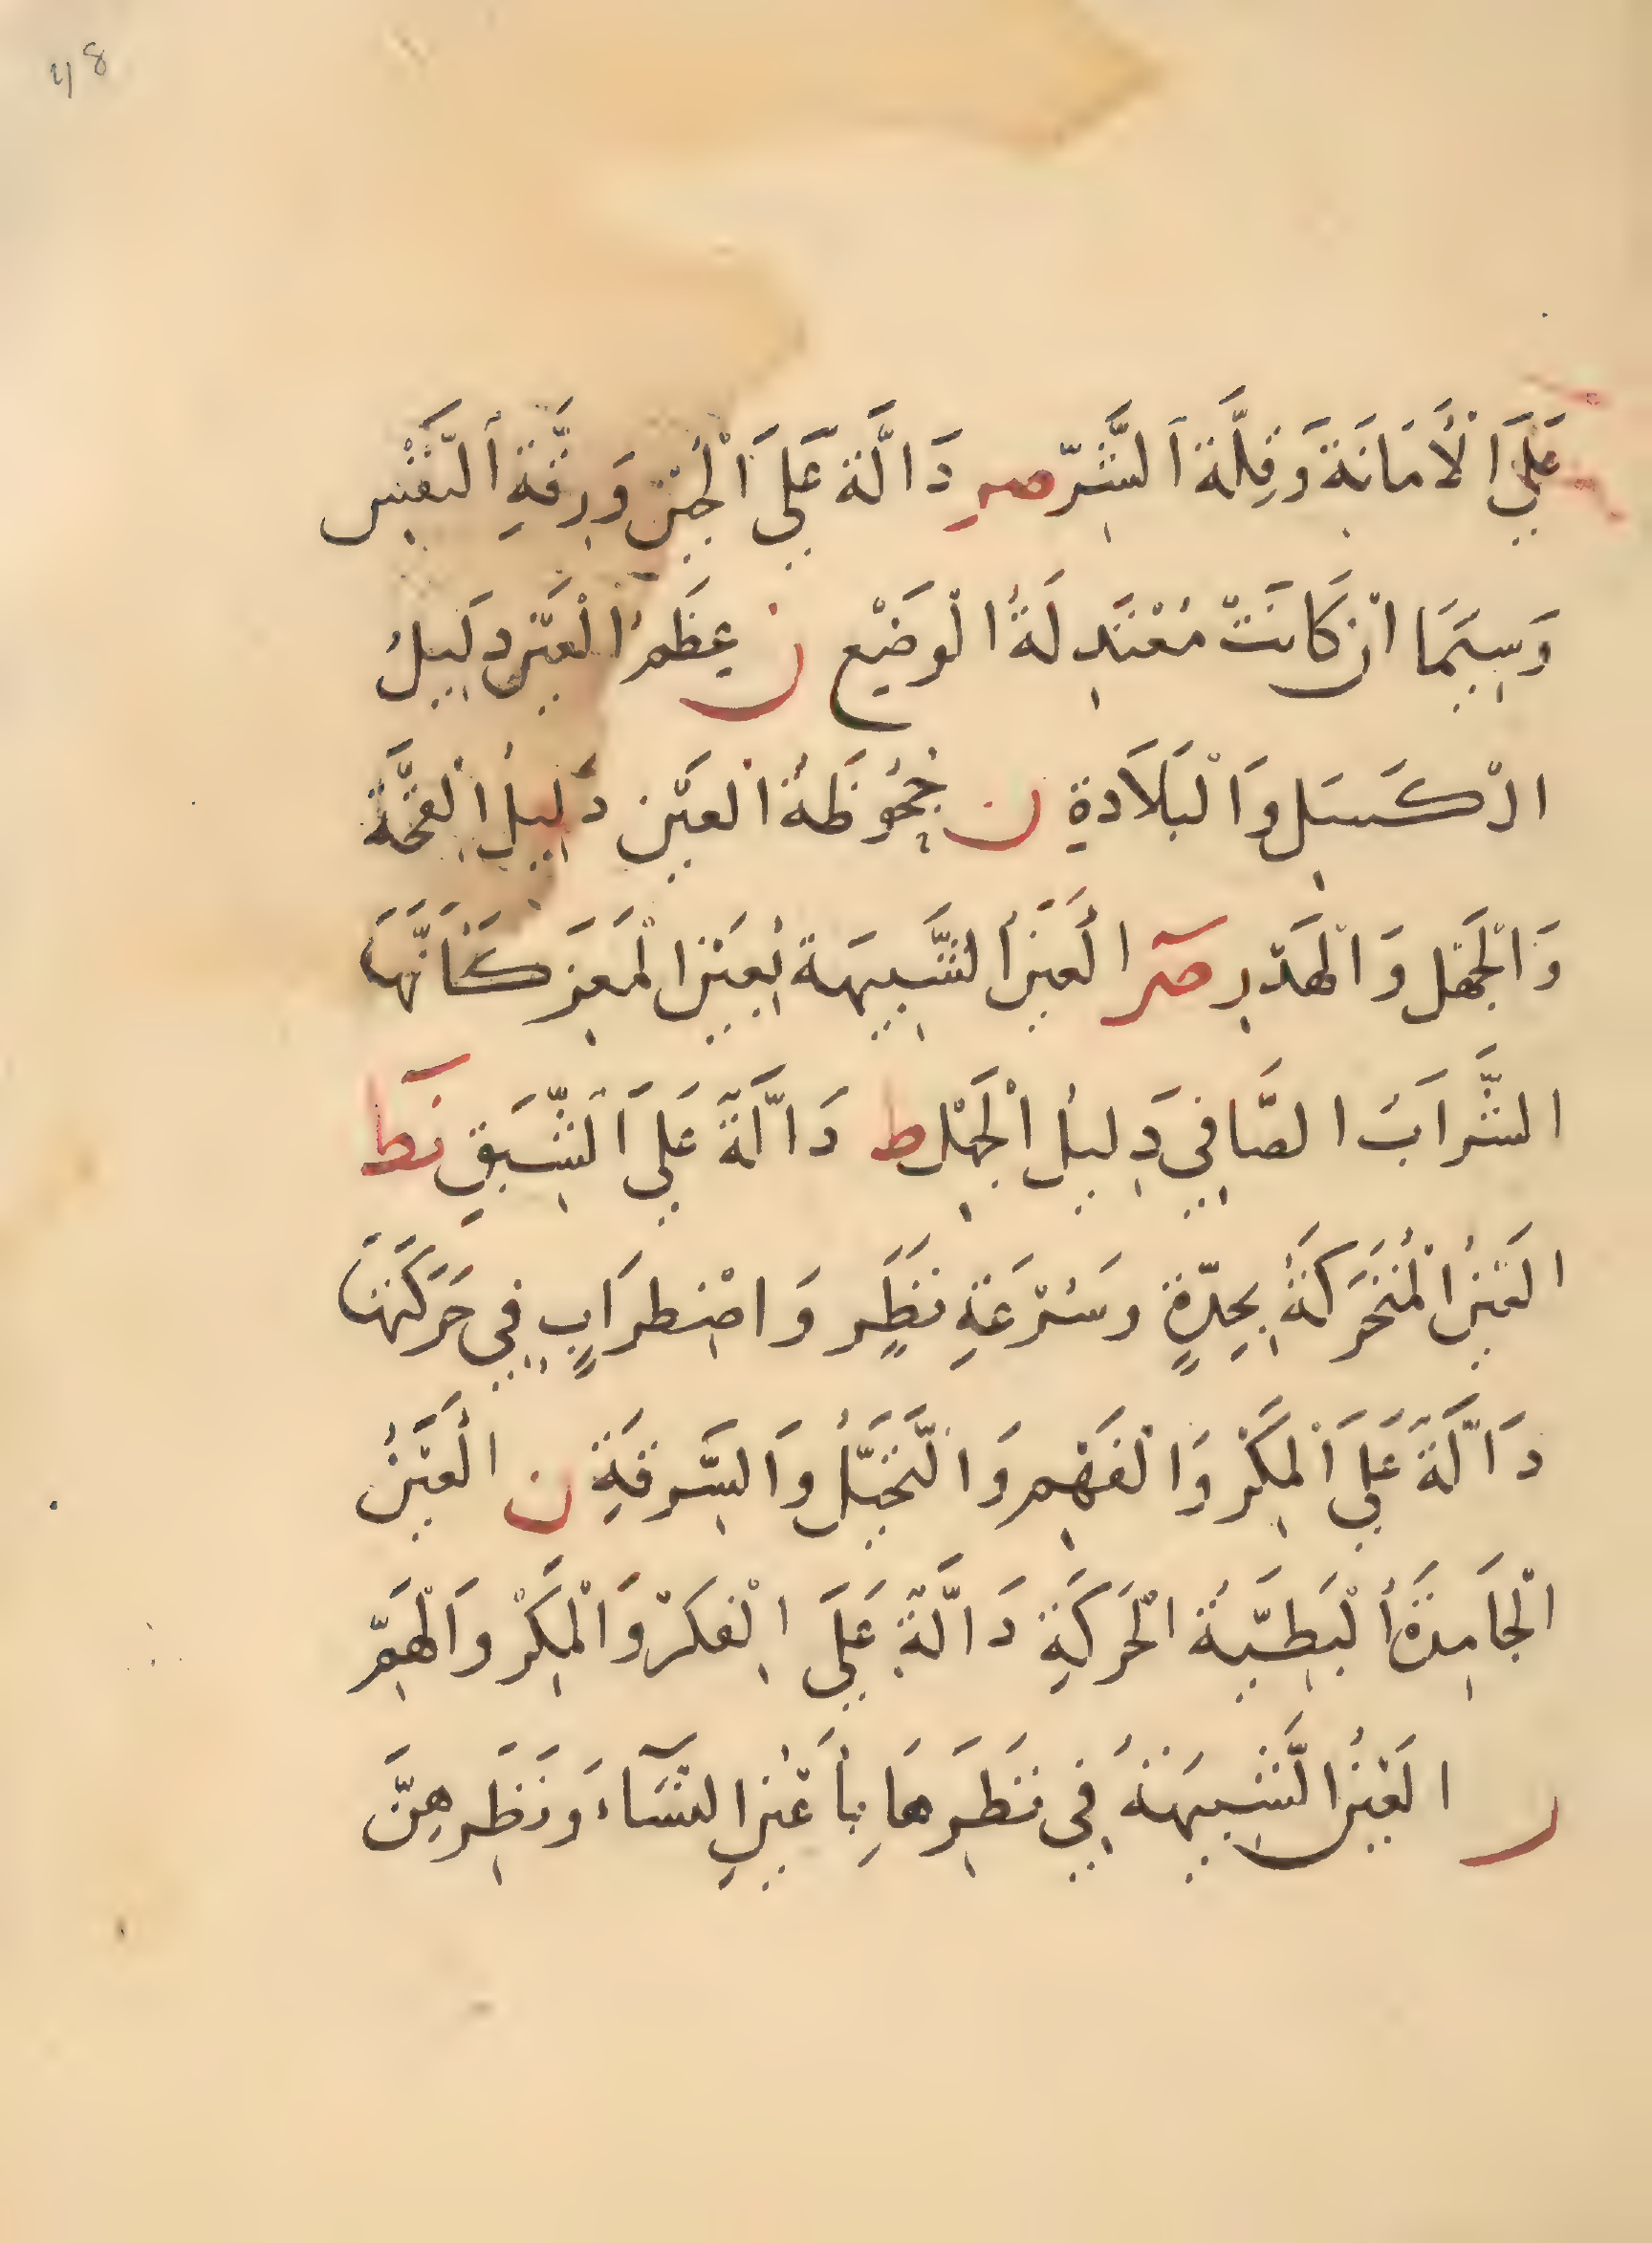 48
عَلَى الْأَمَانَةِ وَقِلَّةِ الشَّرِّ صر دَالَّة عَلَى الْجُبْنِ وَرِقَّةِ النَّفْسِ
وَسِيَمَا انْ كَانَتْ مُعْتَدِلَةُ الْوَضْعِ ن عِظَمُ الْعَيْنِ دَلِيلُ
الْكَسَلِ وَالْبَلَادَةِ ن جُحُوظَةُ الْعَيْنِ دَلِيلُ الْقِحَّة
وَالْجَهْلِ وَالْهَذْرِ صر الْعَيْنُ الشَّبِيهَة بِعَيْنِ الْمَعِز كَأَنَّهَا
الشَّرَابَ الصَّافِي دَلِيلُ الْجَهْلِ ط دَالَّةً عَلَى الشَّبَقِ نط
الْعَيْنُ الْمُتَحَرِّكَةُ بِحِدَّةٍ وسُرْعَةِ نَظَرٍ وَاضْطِرَابٍ فِي حَرَكَتِهَا
دَالَّةً عَلَى الْمَكْرِ وَالْفَهْمِ وَالتَّخَيُّلِ وَالسَّرِقَةِ ن الْعَيْنُ
الْجَامِدَةُ الْبَطِيَّةُ الْحَرَكَةِ دَالَّةً عَلَى الْفِكْرِ وَالْمَكْرِ وَالْهَمِّ
ر الْعَيْنُ الشَّبِيهَةُ فِي نَظَرِهَا بِأَعْيُنِ النِّسَاءَ وَنَظَرِهِنَّ